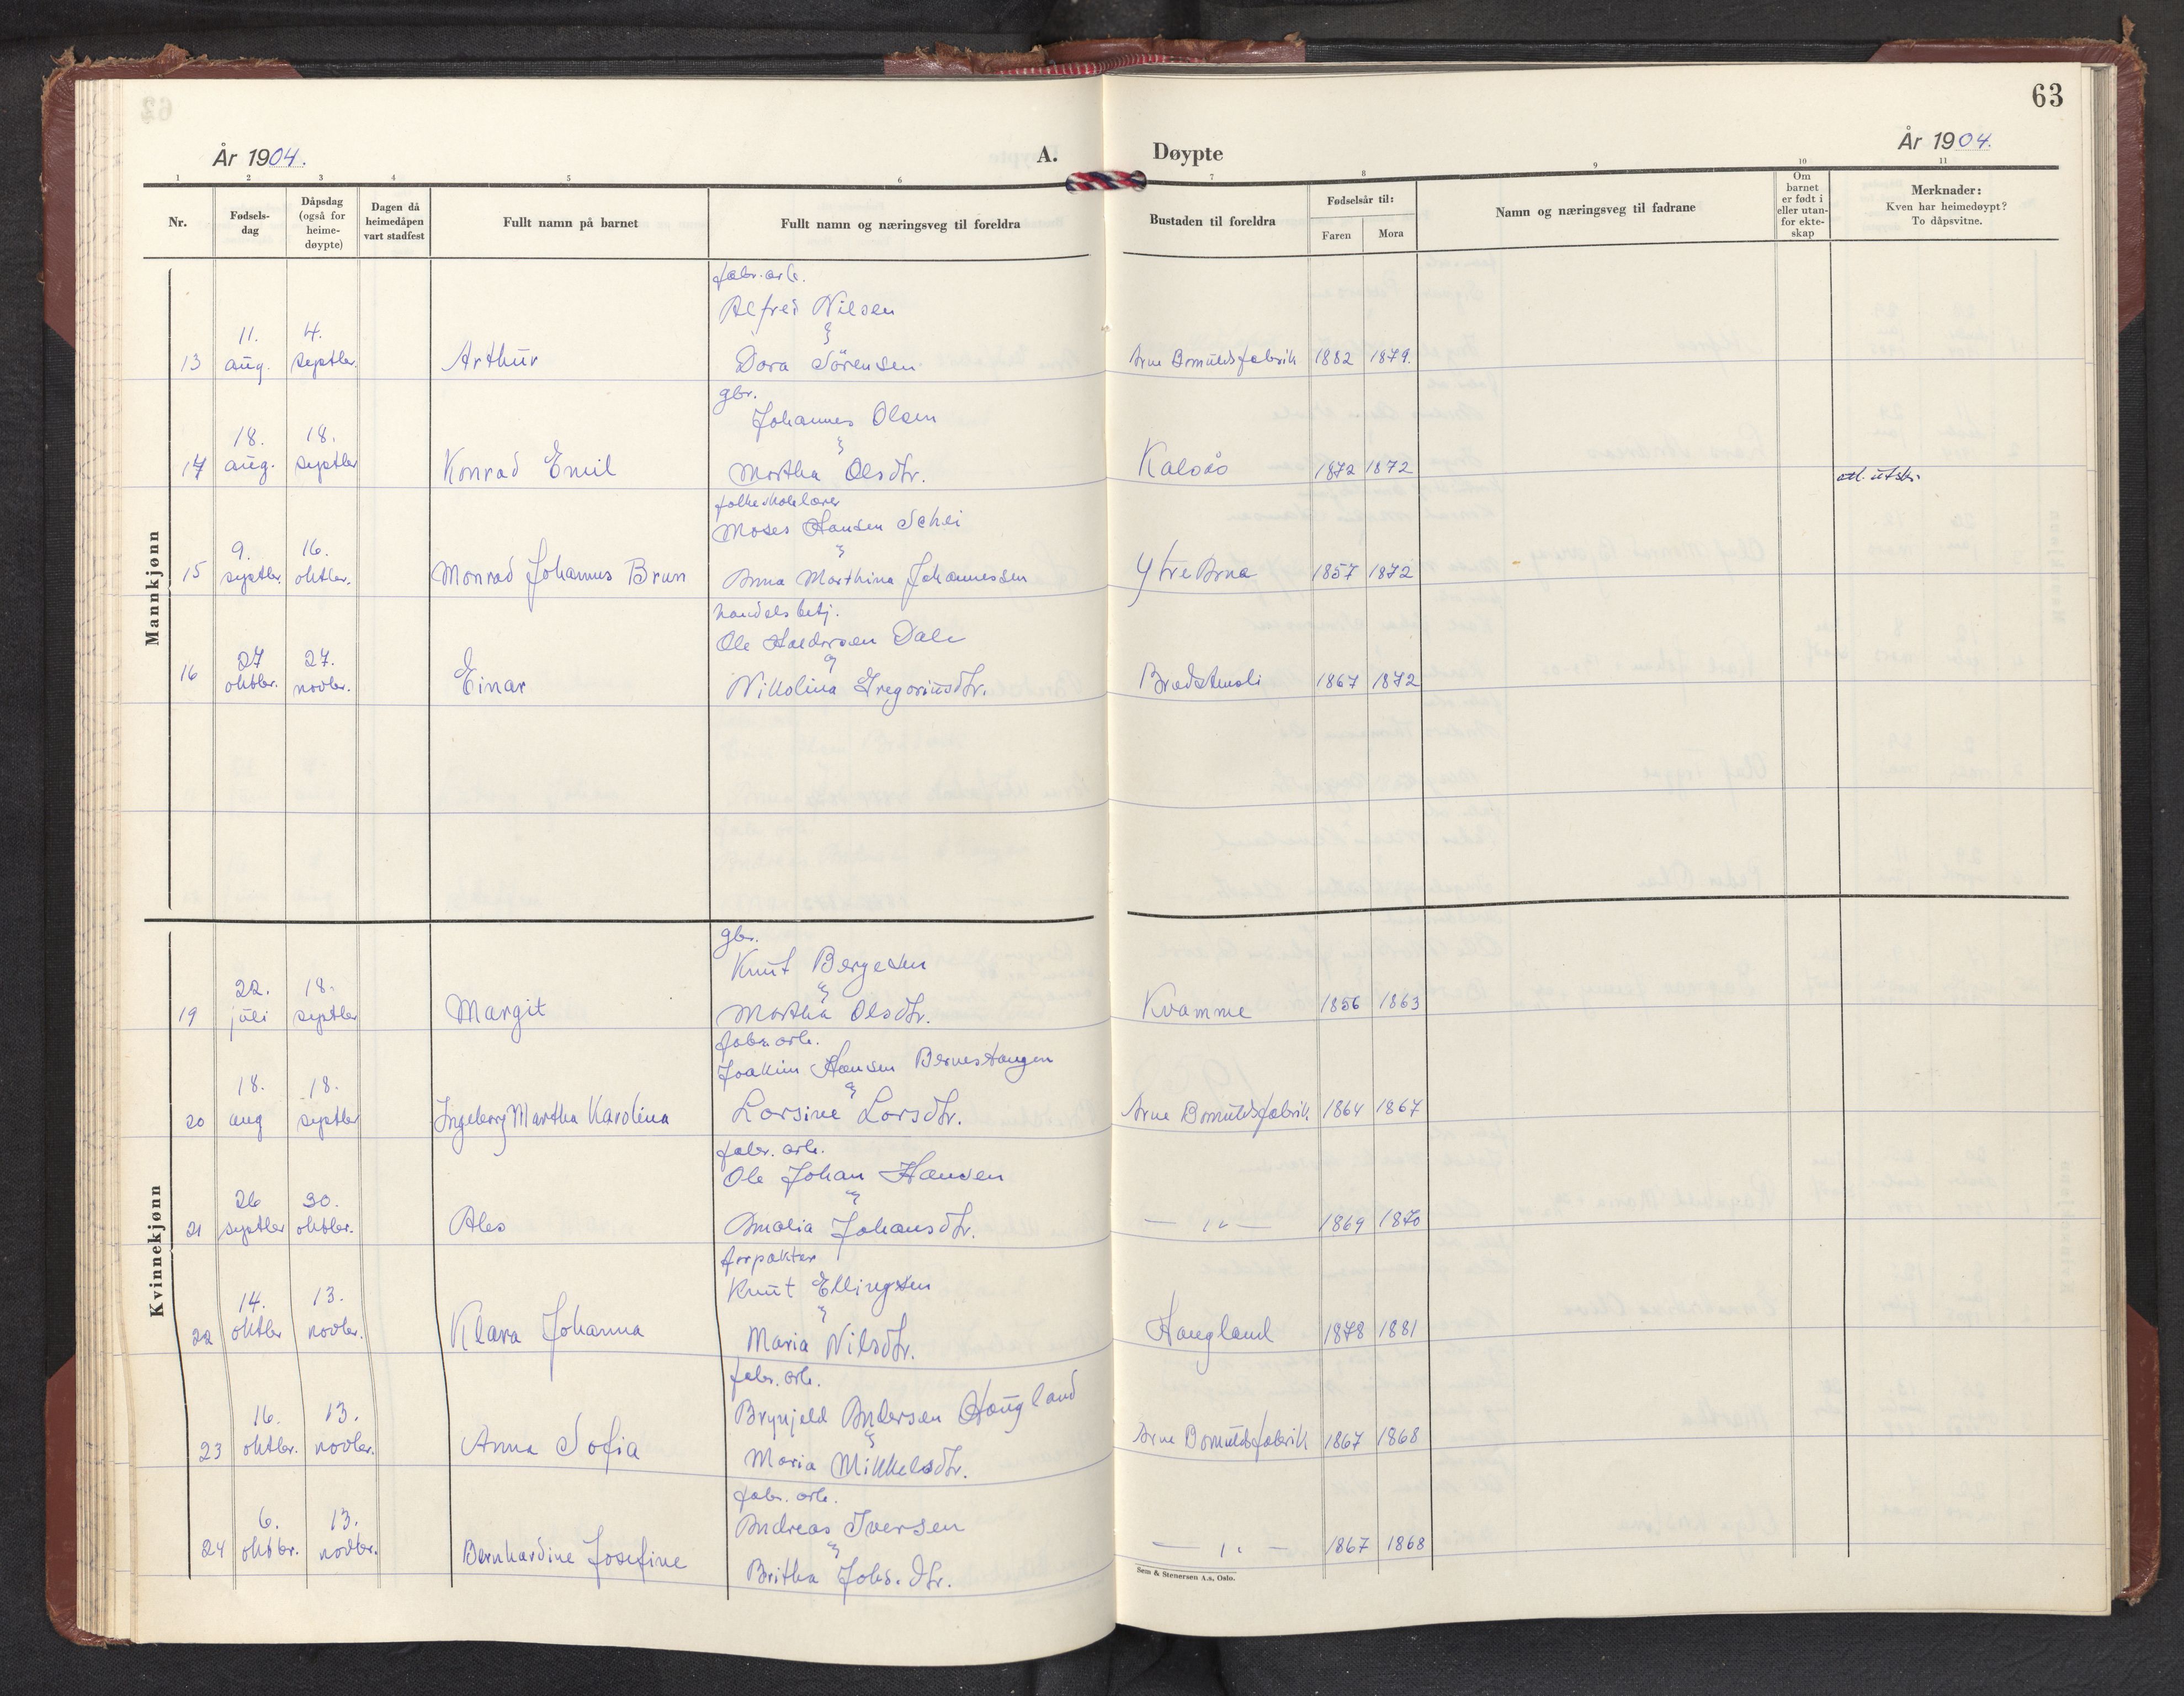 63
År 1904.
A.
Døypte
År 1904.
1 2 3 4 5 6 7 8 9 10 11
Nr.
Fødsels-
dag
Dåpsdag
(også for
heime-
døypte)
Dagen då
heimedåpen
vart stadfest
Fullt namn på barnet
Fullt namn og næringsveg til foreldra
Bustaden til foreldra
Fødselsår til:
Faren Mora
Namn og næringsveg til fadrane
Om
barnet
er født i
eller utan-
for ekte-
skap
Merknader:
Kven har heimedøypt?
To dåpsvitne.
Mannkjønn
fabr. arb.
Alfred Nilsen
&
11. 4.
13 aug. septbr. Arthur Dora Sörensen Arne Bomuldsfabrik 1882 1879.
gbr.
Johannes Olsen
&
18. 18.
14 aug. septbr Konrad Emil Martha Olsdtr. Kalsås 1872 1872 att. utskr.
folkeskolelærer
Moses Hansen Schei
&
9. 16.
15 septbr. oktbr. Monrad Johannes Brun Anna Marthina Johannessen Ytre Arna 1857 1872
handelsbetj.
Ole Haldorsen Dale
&
27 27.
16 oktbr. novbr. Einar Nikolina Gregoriusdtr. 1867 1872
Kvinnekjønn
gbr.
Knut Bergesen
&
22. 18.
19 juli septbr Margit Martha Olsdtr. Kvamme 1856 1863
fabr. arb.
Joakim Hansen Bernestangen
&
18. 18.
20 aug septbr Ingeborg Martha Karolina Larsine Larsdtr. Arne Bomuldsfabrik 1864 1867
fabr. arb.
Ole Johan Hansen
&
26 30.
21 septbr oktbr. Amalia Johansdtr. — " — 1869 1870
forpakter
Knut Ellingsen
&
14. 13.
22 oktbr novbr. Klara Johanna Maria Nilsdtr. Haugland 1878 1881
fabr. arb.
Brynjeld Andersen Haugland
&
16. 13.
23 oktbr. novbr. Anna Sofia Maria Mikkelsdtr. Arne Bomuldsfabrik 1867 1868
fabr. arb.
Andreas Iversen
&
6. 13.
24 oktbr. novbr. Bernhardine Josefine Britha Johs. dtr. — " — 1867 1868
Sem & Stenersen A.s, Oslo.